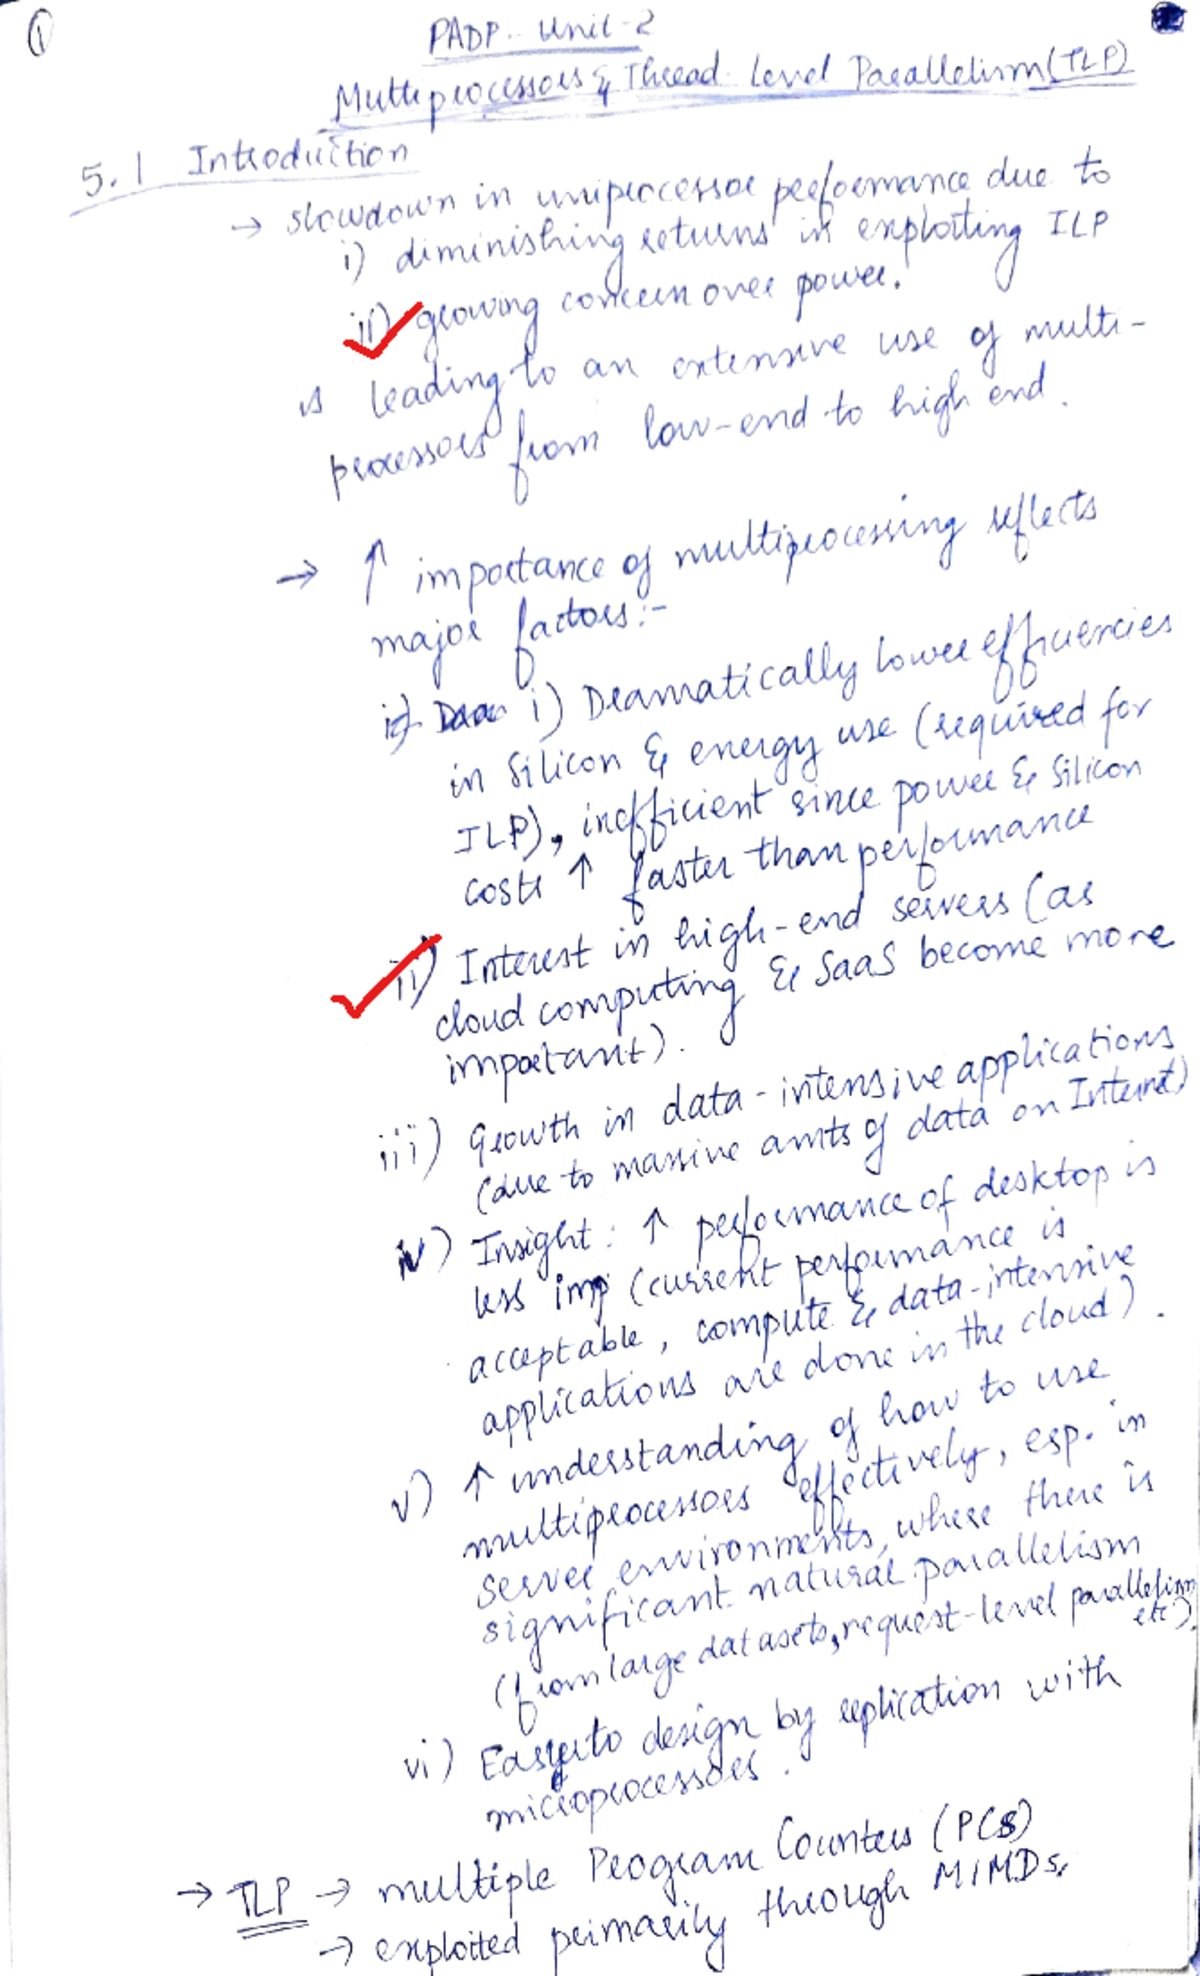 1
PADP - Unit - 2
Multiprocessors & Thread - Level Parallelism (TLP)
5.1 Introduction
→ slowdown in uniprocessor performance due to
i) diminishing returns in exploiting ILP
ii) growing concern over power.
is leading to an extensive use of multi-
processors from low-end to high end.
→ ↑ importance of multiprocessing reflects
major factors:-
i) Dramatically lower efficiencies
in Silicon & energy use (required for
ILP), inefficient since power & Silicon
costs ↑ faster than performance
ii) Interest in high-end servers (as
cloud computing & SaaS become more
important).
iii) Growth in data-intensive applications
(due to massive amts of data on Internet)
iv) Insight: ↑ performance of desktop is
less imp (current performance is
acceptable, compute & data-intensive
applications are done in the cloud).
v) ↑ understanding of how to use
multiprocessors effectively, esp. in
server environments, where there is
significant natural parallelism
(from large datasets, request-level parallelism
etc).
vi) Easier to design by replication with
microprocessors.
→ TLP → multiple Program Counters (PCs)
→ exploited primarily through MIMDs.